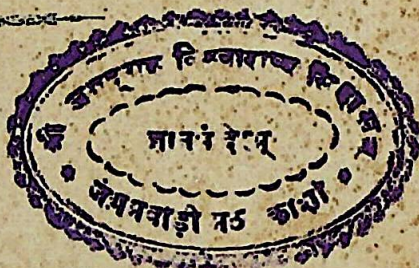 श्री जगद्गुरु विश्वाराध्य सिंहासन
ज्ञान मंदिर
जंगमवाड़ी मठ काशी